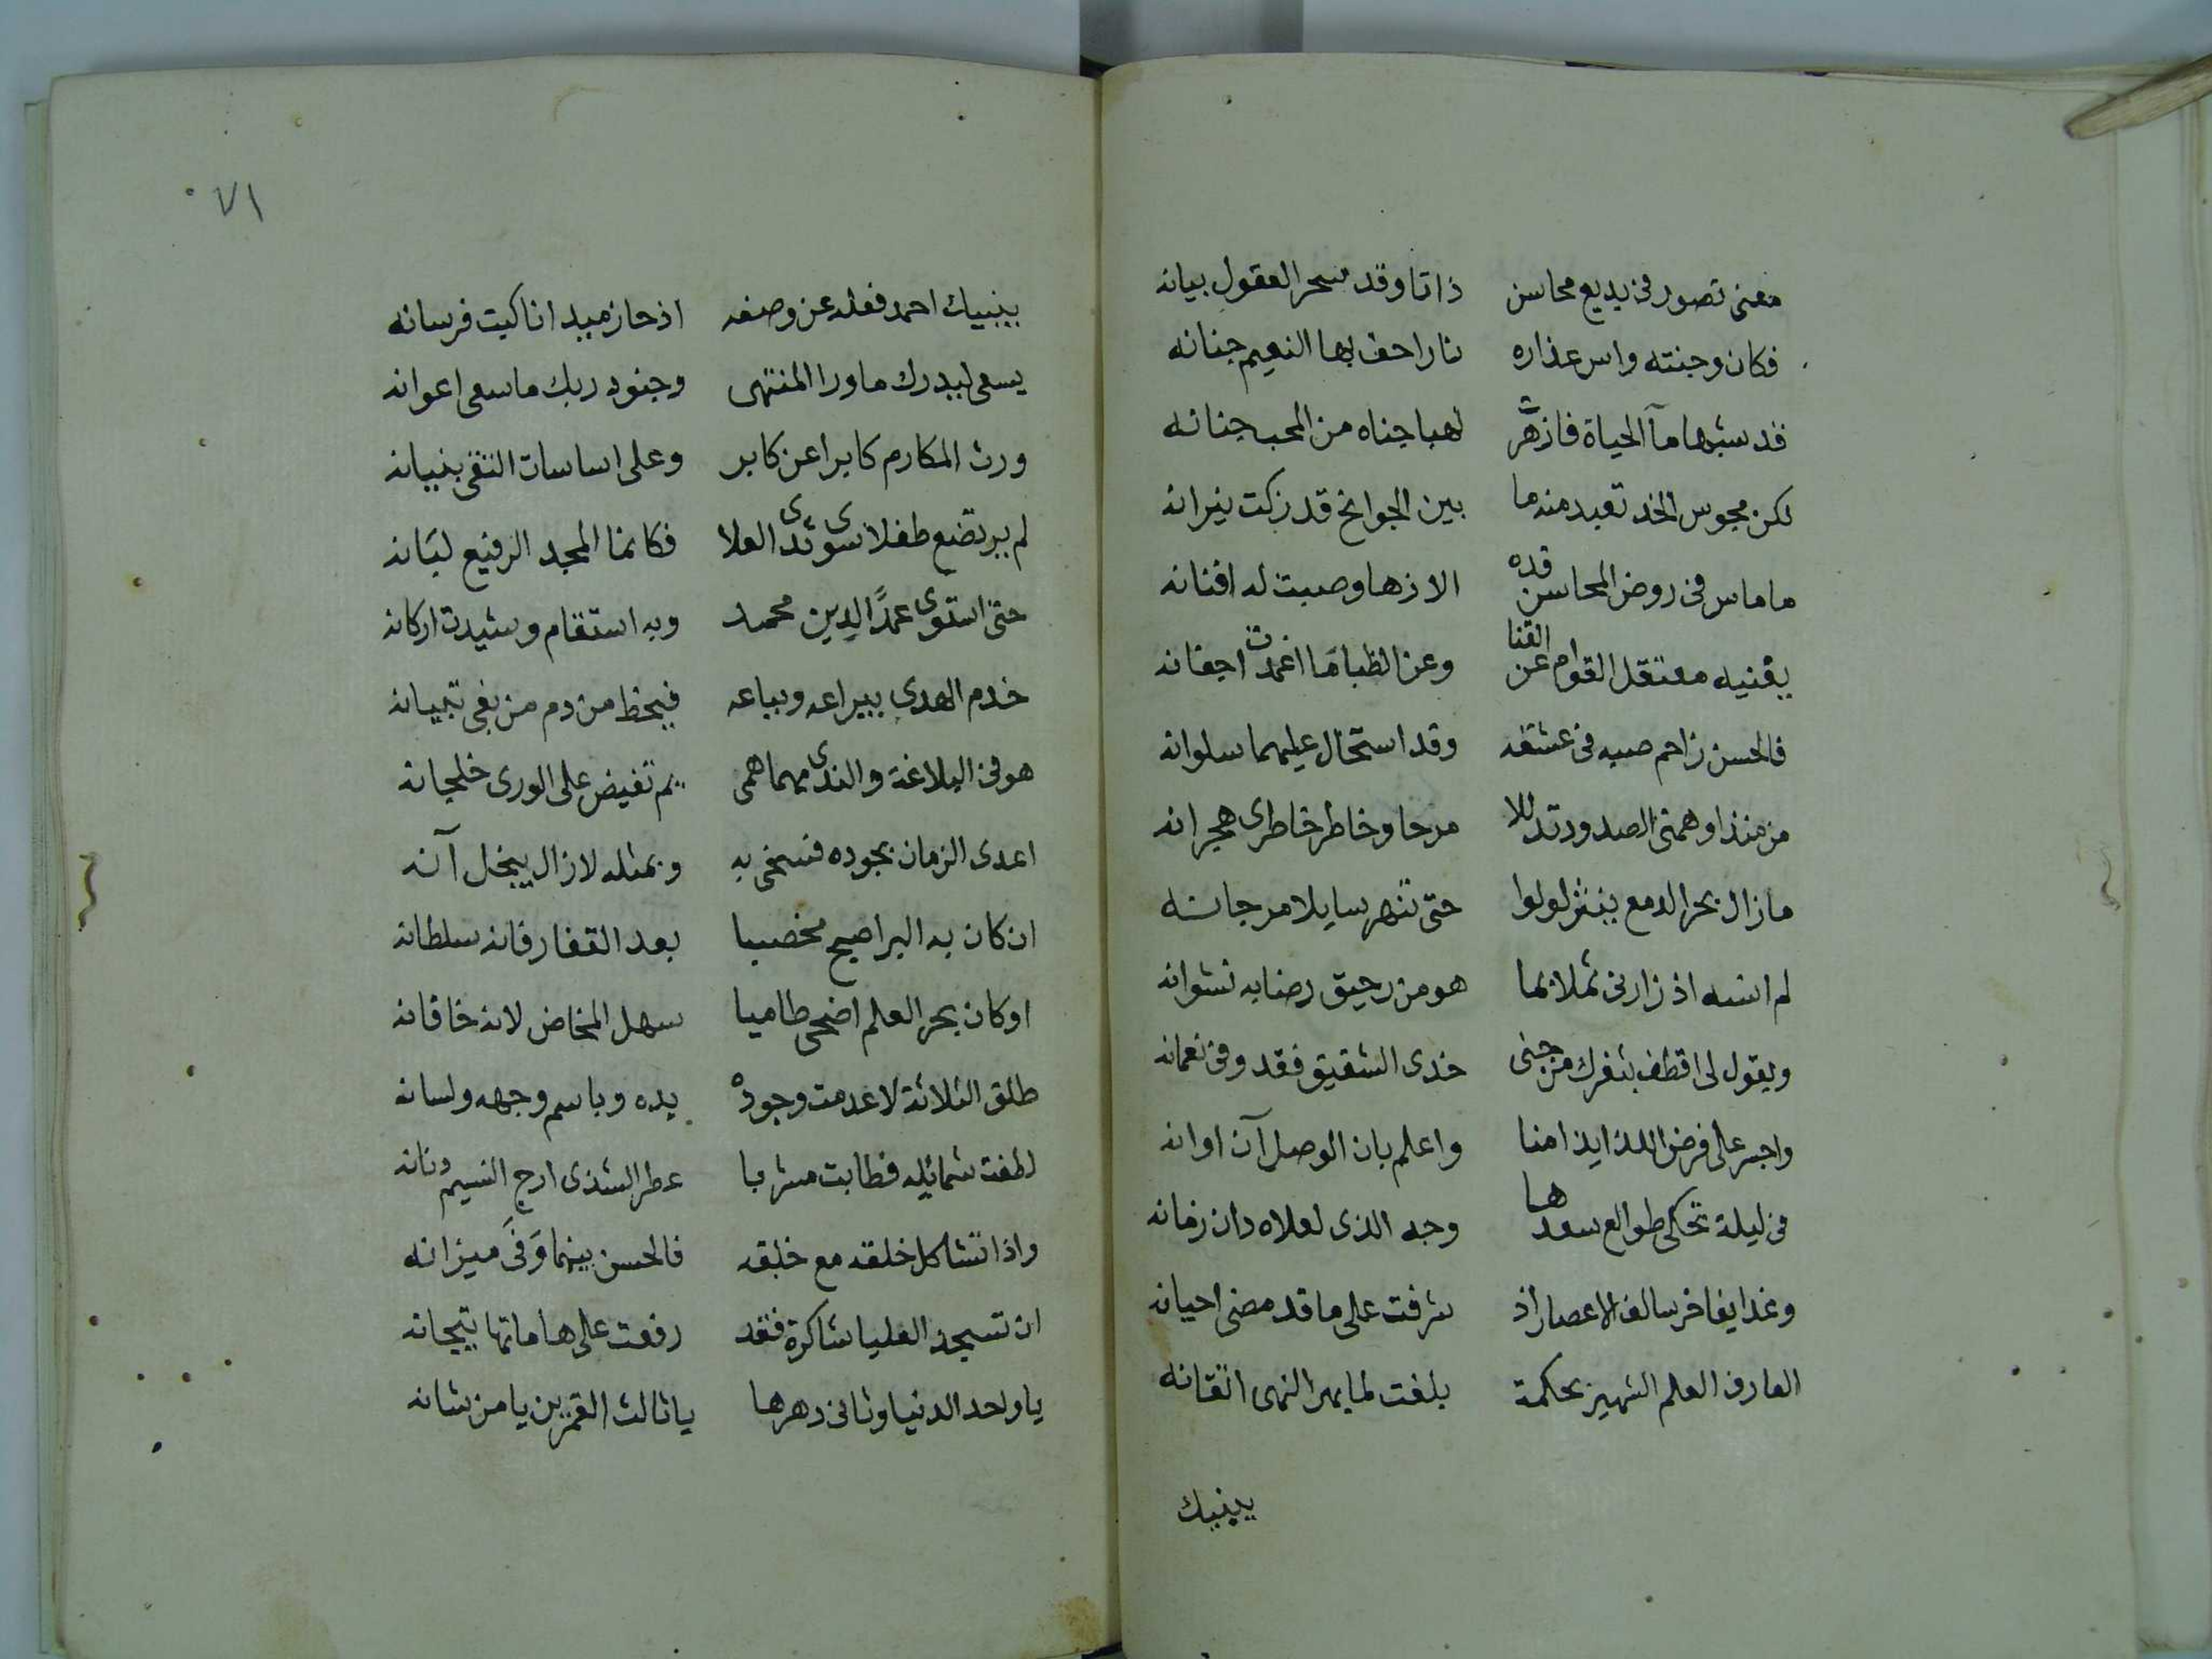 معنى تصور فى بديع محاسن ذاتا وقد سحر العقول بيانه
فكان وجنته واس عذاره نارا حف بها النعيم جنانه
قد شبها مآ الحياة فازهرت لهبا جناه من المحب جنانه
لكن مجوس الخد تعبد منه ما بين الجوانح قد زكت نيرانه
ما ماس فى روض المحاسن قده الا زها وصبت له افنانه
يغنيه معتقل القوام عن القنا وعن الظبا ما اغمدت اجفانه
فالحسن زاحم صبه فى عشقه وقد استحال عليهما سلوانه
من منذ اوهمنى الصدود تدللا مرحا وخاطر خاطرى هجرانه
ما زال بحر الدمع ينثر لولوا حتى تنهر سايلا مرجانه
لم انسه اذ زارنى ثملا بما هو من رحيق رضابه نشوانه
ويقول لى اقطف بثغرك من جنى خدى الشقيق فقد وفى نعمانه
واجسر على فرض اللذايذ امنا واعلم بان الوصل آن اوانه
فى ليلة تحكى طوالع سعدها وجه الذى لعلاه دان زمانه
وغدا يفاخر سالف الاعصار اذ شرفت على ما قد مضى احيانه
العارف العلم الشهير بحكمة بلغت لما بهر النهى اتقانه
ينبيك
ينبيك احمد فعله عن وصفه اذ حاز ميدانا كبت فرسانه
يسعى ليدرك ما ورا المنتهى وجنود ربك ما سعى اعوانه
ورث المكارم كابرا عن كابر وعلى اساسات التقى بنيانه
لم يرتضع طفلا سوى ثدى العلا فكانما المجد الرفيع لبَانه
حتى استوى عمدًا لدين محمد وبه استقام وشيدت اركانه
خدم الهدى بيراعه وبباعه فبخط من دم من بغى تبيانه
هو فى البلاغة والندى مهما همى يم تفيض على الورى خلجانه
اعدى الزمان بجوده فسخى به وبمثله لا زال يبخل آنه
ان كان به البر اصبح مخصبا بعد القفار فانه سلطانه
او كان بحر العلم اضحى طاميا سهل المخاض لانه خاقانه
طلق الثلاثة لا عدمت وجوده يده وباسم وجهه ولسانه
لطفت شمائيله فطابت مشربا عطر الشذى ارج النسيم
واذا تشاكل خلقه مع خلقه فالحسن بينهما وَفَى ميزانه
ان تسجد العليا شاكرة فقد رفعت على هاماتها تيجانه
يا واحد الدنيا وثانى دهرها يا ثالث القمرين يا من شانه
٧١